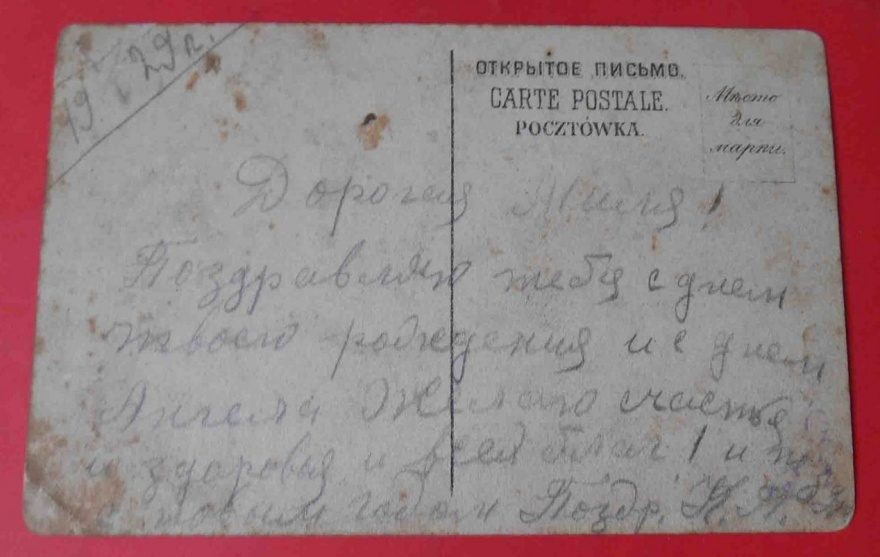 19 29 г.
ОТКРЫТОЕ ПИСЬМО.
CARTE POSTALE.
POCZTÓWKA.
Мѣсто
для
марки.
Дорогая Миля!
Поздравляю тебя с днем
твоего рождения и с днем
Ангела Желаю счастья
и здоровья и всей благ! и
с новым годом Поздр.